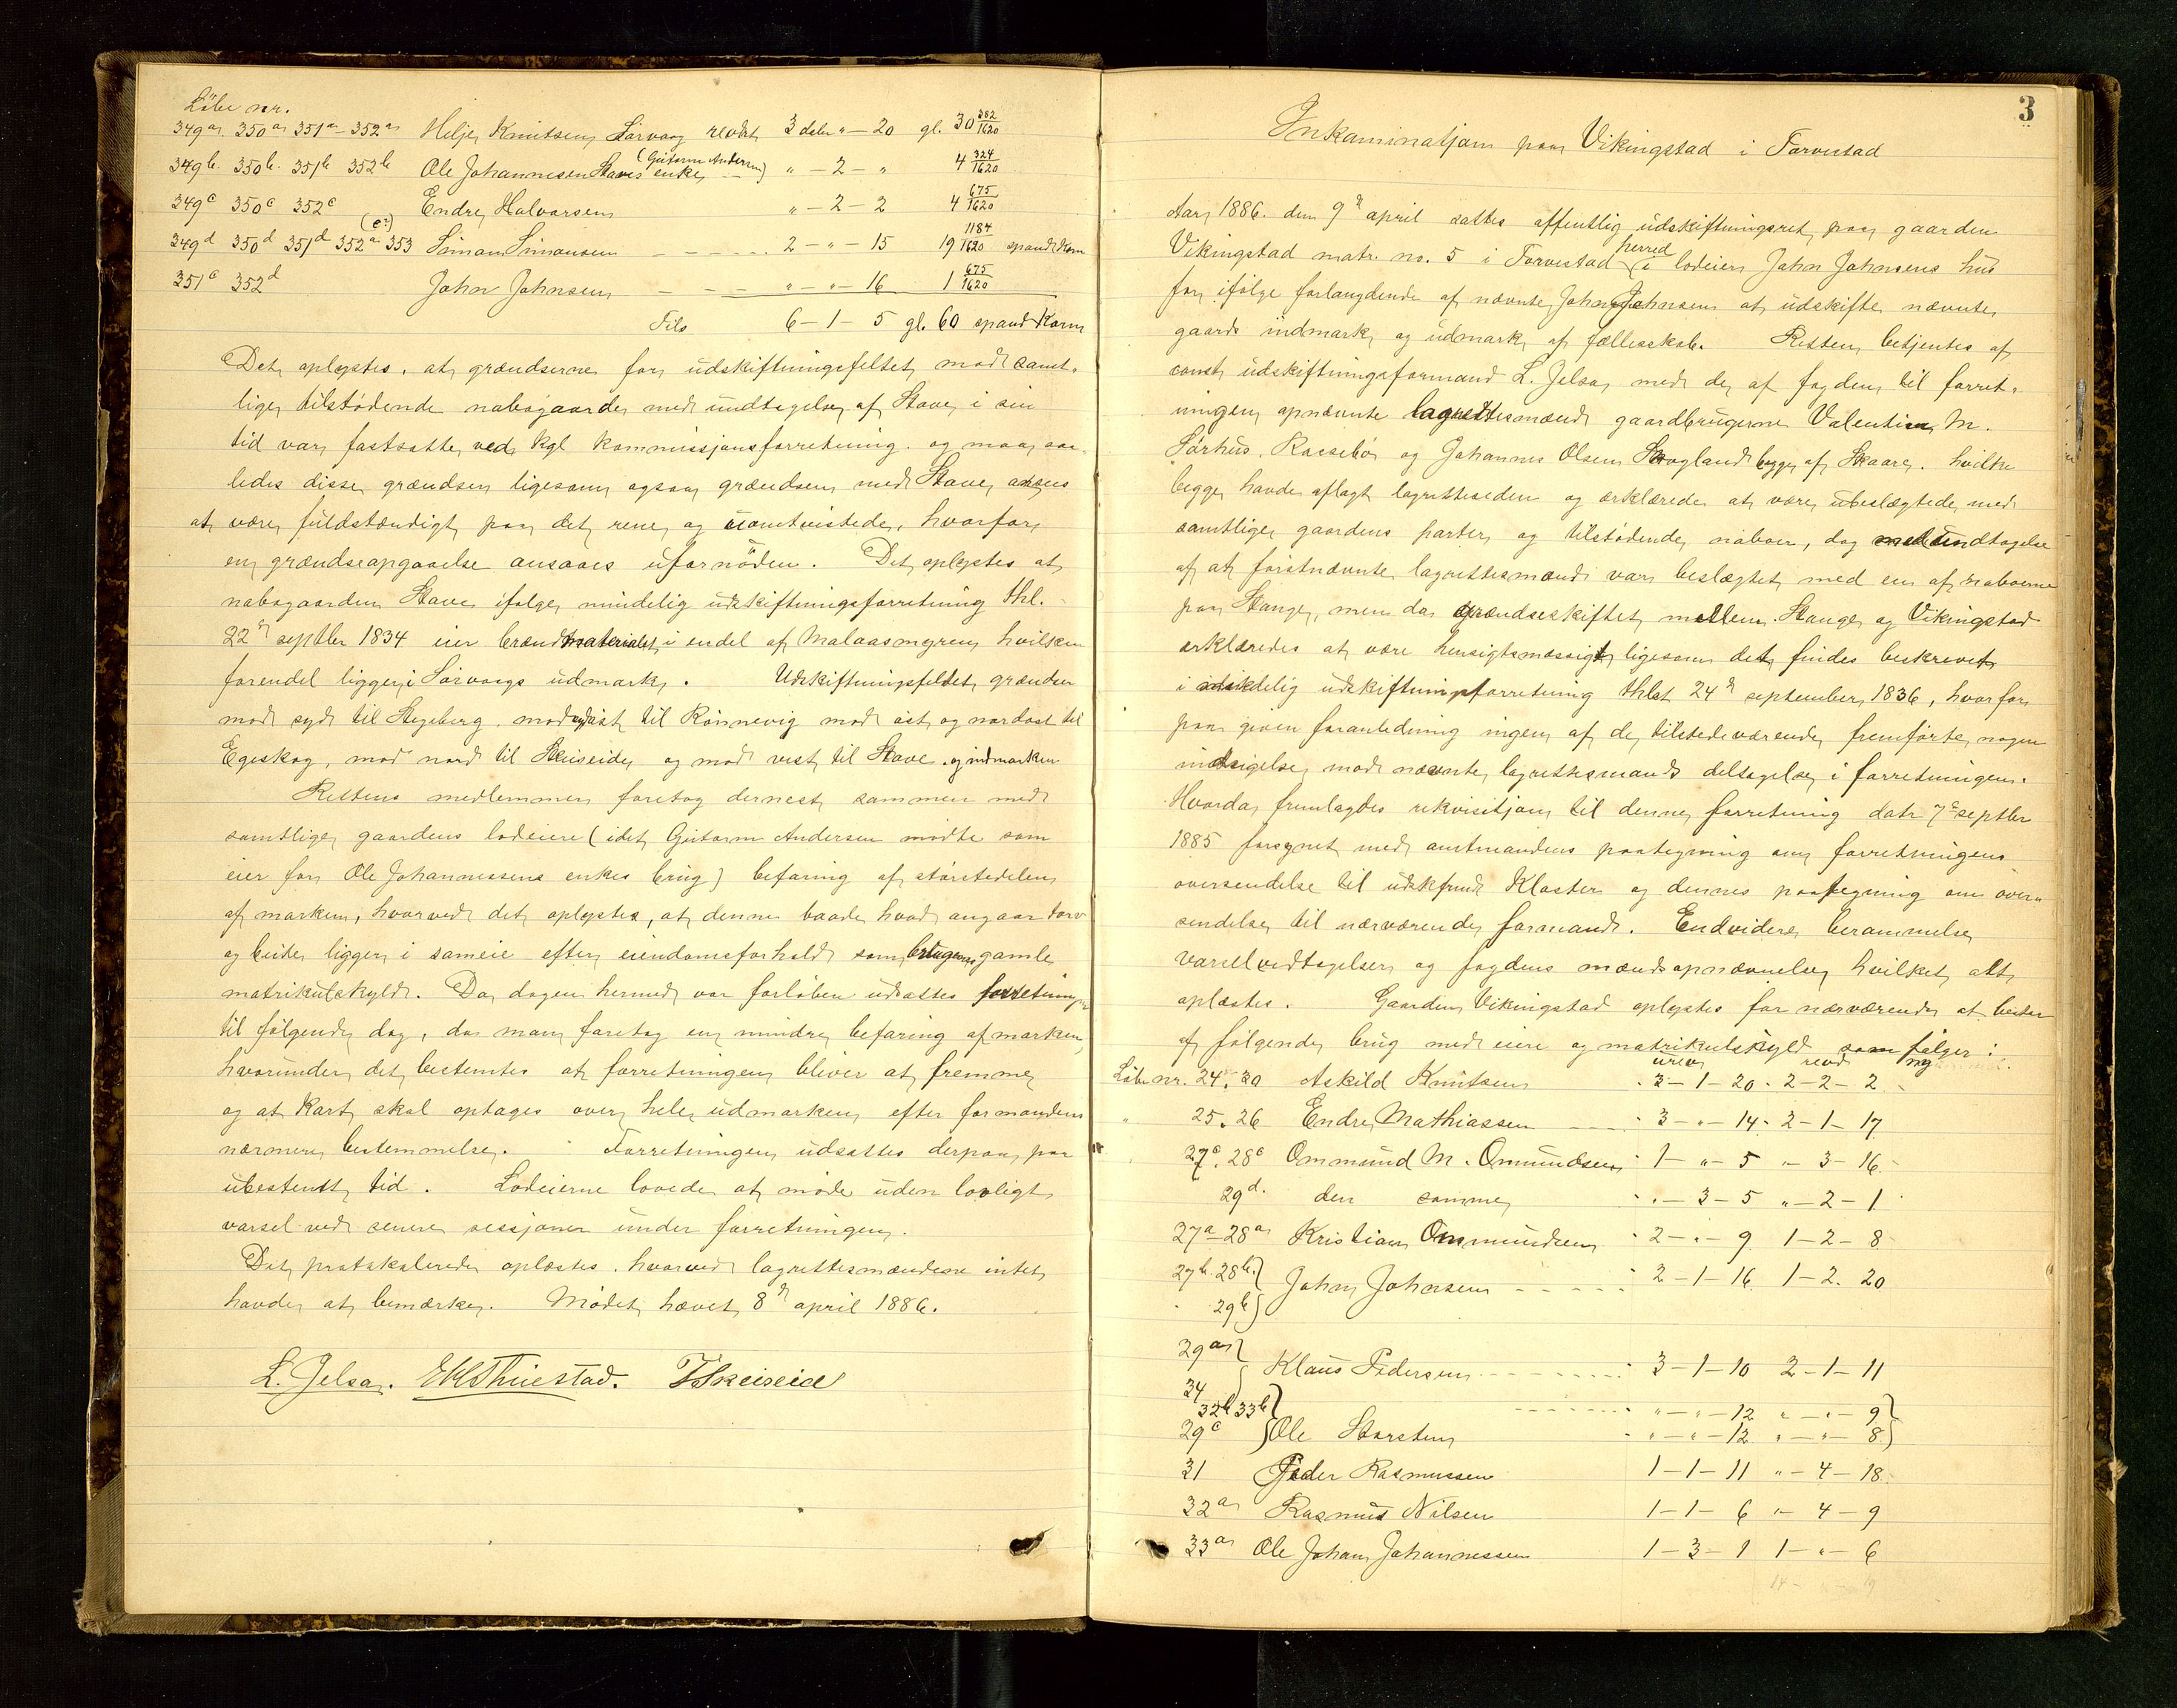 Løbe nr.
349a 350a 351a - 352a Helje Knutsen Sørvaag revdrt 3 daler " - 20 gl. 30 382/1620
349b. 350b. 351b 352b Ole Johannesen Staves enke (Gutorm Andersen) " - 2 - " 4 324/1620
349c 350c 352c Endre Halvorsen " - 2 - 2 4 675/1620
349d 350d 351d 352a (e?) 353 Siman Simonsen 2 - " - 15 19 1184/1620 spand Korn
351c 352d John Johnsen " - " - 16 1 675/1620
Tils 6 - 1 - 5 gl. 60 spand Korn
Det oplystes, at grændserne for udskiftningsfeltet mod samt-
lige tilstødende nabogaarde med undtagelse af Stave i sin
tid var fastsatte ved kgl kommissjonsforretning. og maa saa-
ledes disse grændser ligesom ogsaa grændsen med Stave ansees
at være fuldstændigt paa det rene og uomtvistede, hvorfor
en grændseopgaaelse ansaaes ufornøden. Det oplystes at
nabogaarden Stave ifølge mindelig udskiftningsforretning thl.
22d septbr 1834 eier brændmaterialet i endel af Malaasmyren hvilken
forendel ligger i Sørvaags udmark. Udskiftningsfeldtet grændser
mod syd til Stegberg, mod sydøst til Rønnevig mod øst og nordost til
Egeskog, mod nord til Skeiseide og mod vest til Stave. og indmarken
Rettens medlemmer foretog dernest sammen med
samtlige gaardens lodeiere (idet Gutorm Andersen mødte som
eier for Ole Johannessens enkes brug) befaring af størstedelen
af marken, hvorved det oplystes, at denne baade hvad angaar torv
og beite ligger i sameie efter eiendomsforhold som brugenes gamle
matrikulskyld. Da dagen hermed var forløben udsattes forretningen
til følgende dag, da man foretog en mindre befaring af marken,
hvorunder det bestemtes at forretningen bliver at fremme
og at Kart skal optages over hele udmarken efter formandens
nærmere bestemmelse. Forretningen udsattes derpaa paa
ubestemt tid. Lodeierne lovede at møde uden lovligt
varsel ved senere sessjoner under forretningen.
Det protokolerede oplæstes. hvorved lagrettesmændene intet
havde at bemærke. Mødet hævet 8d april 1886.
L. Jelsa. EKThuestad. TSkeiseid
3
Inkaminatjon paa Vikingstad i Torvestad
Aar 1886. den 9d april sattes offentlig udskiftningsret paa gaarden
Vikingstad matr. no. 5 i Torvestad herred i lodeier John Johnsens hus
for ifølge forlangdende af nævnte John Johnsen at udskifte nævnte
gaards indmark og udmark af fællesskab. Retten betjentes af
const udskiftningsformand L. Jelsa, med de af fogden til forret-
ningen opnævnte lagrettesmænd gaardbrugerne Valentin M.
Sørhus, Rossebø og Johannes Olsen Skogland begge af Skaare. hvilke
begge havde aflagt lagretteseden og erklærede at være ubeslægtede med
samtlige gaardens parter og tilstødende naboer, dog med undtagelse
af at førstnævnte lagrettesmand var beslægtet med en af naboerne
paa Stange, men da grændseskiftet mellem Stange og Vikingstad
erklæredes at være hensigtsmæssigt ligesom det findes beskrevet
i mindelig udskiftningsforretning thlst 24d september 1836, hvorfor
paa given foranledning ingen af de tilstedeværende fremførte nogen
indsigelse mod nævnte lagrettesmands deltagelse i forretningen.
Hvorda fremlagdes rekvisitjon til denne forretning datr 7d septbr
1885 forsynet med amtmandens paategning om forretningens
oversendelse til udskfmd Kloster og dennes paategning om over-
sendelse til nærværende formand. Endvidere berammelse
varselvedtagelsen og fogdens mændsopnævnelse hvilket alt
oplæstes. Gaarden Vikingstad oplystes for nærværende at bestaa
af følgende brug med eiere og matrikulskyld som følger:
urev revd ny
Løbe nr. 24. 30 Askild Knutsen 3 - 1 - 20 - 2 - 2 - 2
" 25. 26 Endre Mathiassen 3 - " - 14 - 2 - 1 - 17
27c. 28c Ommund M. Omundsen 1 - " - 5 " - 3 - 16
29d. den samme " - 3 - 5 " - 2 - 1
27a - 28a Kristian Ommundsen 2 - " - 9 1 - 2 - 8
27b. 28b. 29b John Johnsen 2 - 1 - 16 1 - 2. 20
29a 34 Klaus Pedersen 3 - 1 - 10 2 - 1 - 11
32b 33b " - " - 12 " - " - 9
29c Ole Storsten " - " - 12 " - " - 8
31 Peder Rasmussen 1 - 1 - 11 " - 4 - 18
32a Rasmus Nilsen 1 - 1 - 6 " - 4 - 9
33a Ole Johan Johannessen 1 - 3 - 1 1 - " - 6
14 - " - 19